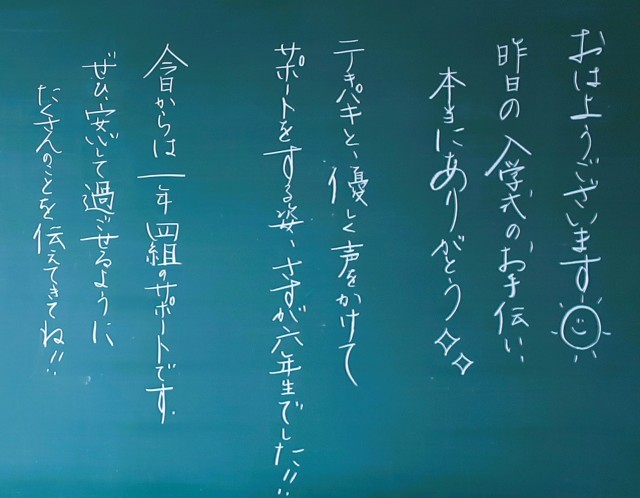 おはようございます
昨日の入学式のお手伝い、
本当にありがとう
テキパキと、優しく声をかけて
サポートをする姿、さすが六年生でした!!
今日からは一年四組のサポートです.
ぜひ、安心して過ごせるように
たくさんのことを伝えてきてね!!